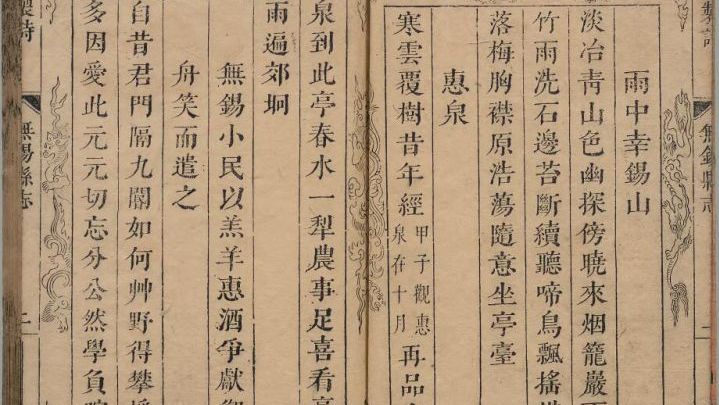 製詩
無錫縣志
二
雨中幸錫山
淡冶青山色幽探傍曉來烟籠巖
竹雨洗石邊苔斷續聽啼鳥飄搖
落梅胸襟原浩蕩隨意坐亭臺
惠泉
寒雲覆樹昔年經甲子觀惠泉在十月再品
泉到此亭春水一犁農事足喜看
雨遍郊坰
無錫小民以羔羊惠酒爭獻御
舟笑而遣之
自昔君門隔九閽如何艸野得攀
多因愛此元元切忘分公然學負
製詩
無錫縣志
二